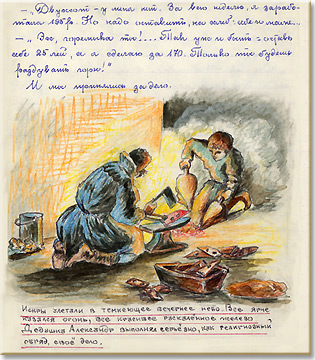 — „Двухсот – у меня нет. За всю неделю, я зарабо-
тала 195 лв. Но надо оставить, на хлеб себе и маме...
— „ Вот, горемыка ты!.... Так уже и быть = оставь
себе 25 лей, а я сделаю за 170. Только ты будешь
раздувать горн!“
И мы принялись за дело.
Искры злетали в темнеющее вечернее небо. Все ярче
казался огонь, все краснее раскаленное железо
Дедушка Александр выполнял серьёзно, как религиозный
обряд, своё дело.